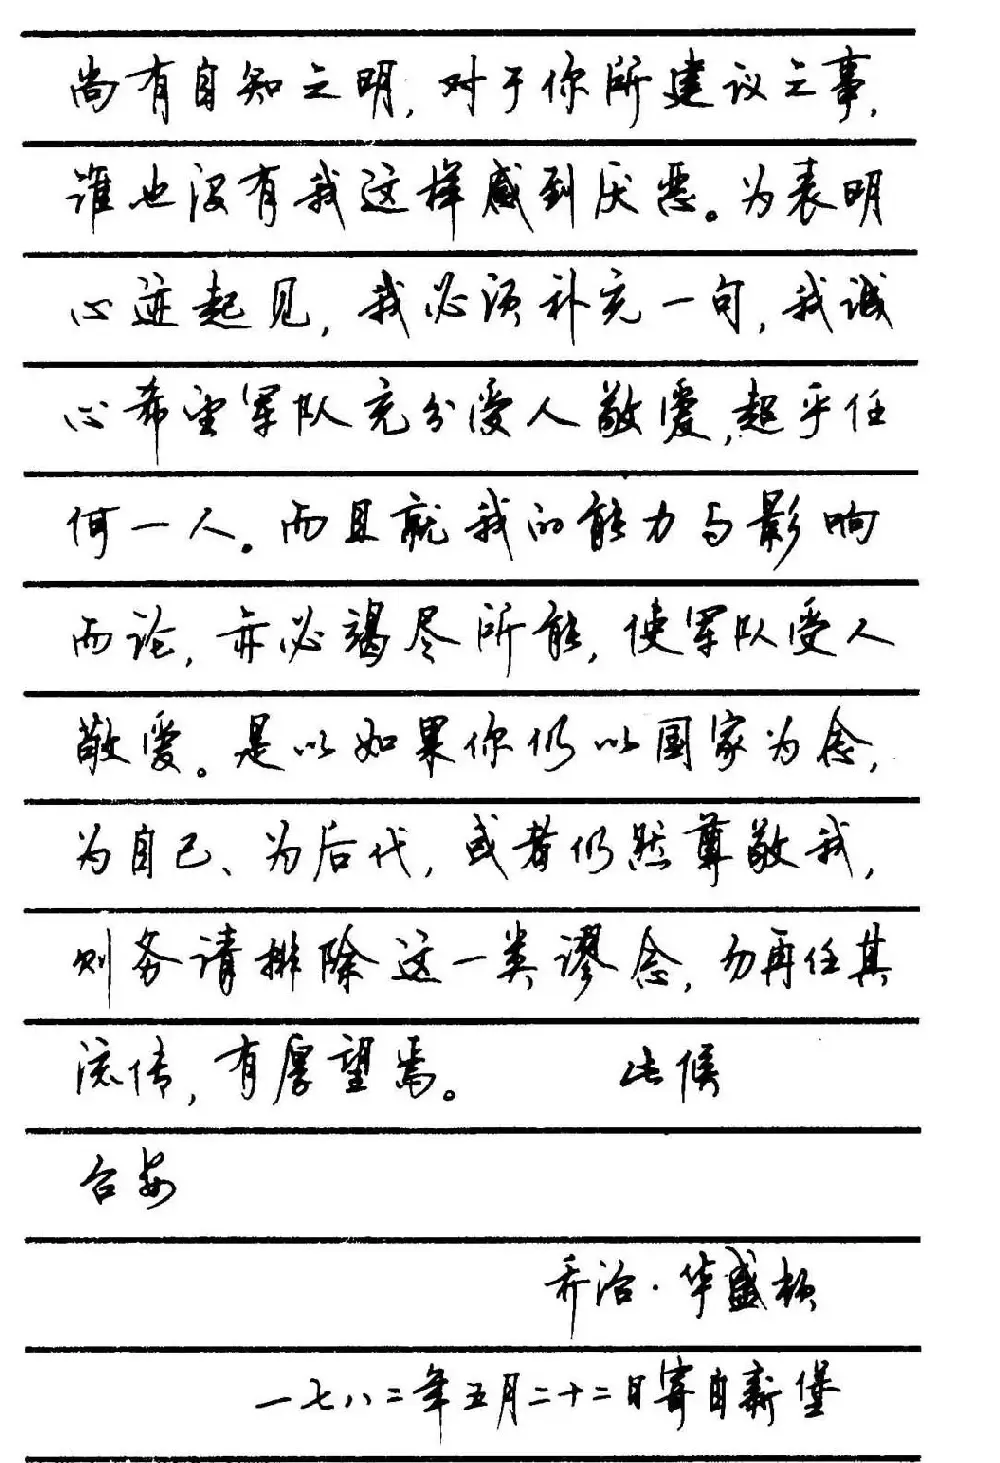 尚有自知之明，对于你所建议之事，
谁也没有我这样感到厌恶。为表明
心迹起见，我必须补充一句，我诚
心希望军队充分受人敬爱，超乎任
何一人。而且就我的能力与影响
而论，亦必竭尽所能，使军队受人
敬爱。是以如果你仍以国家为念，
为自己、为后代，或者仍然尊敬我，
则务请排除这一类谬念，勿再任其
流传，有厚望焉。 此候
台安
乔治·华盛顿
一七八二年五月二十二日寄自新堡